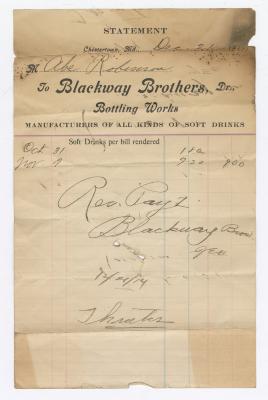 STATEMENT
Chestertown, Md. Dec
M Abe Robinson
To Blackway Brothers, Dr.
Bottling Works
MANUFACTURERS OF ALL KINDS OF SOFT DRINKS
Soft Drinks per bill rendered
Oct 31
Nov 7 7 20
Rec. Payt.
Blackway Bros
Geo
Thanks